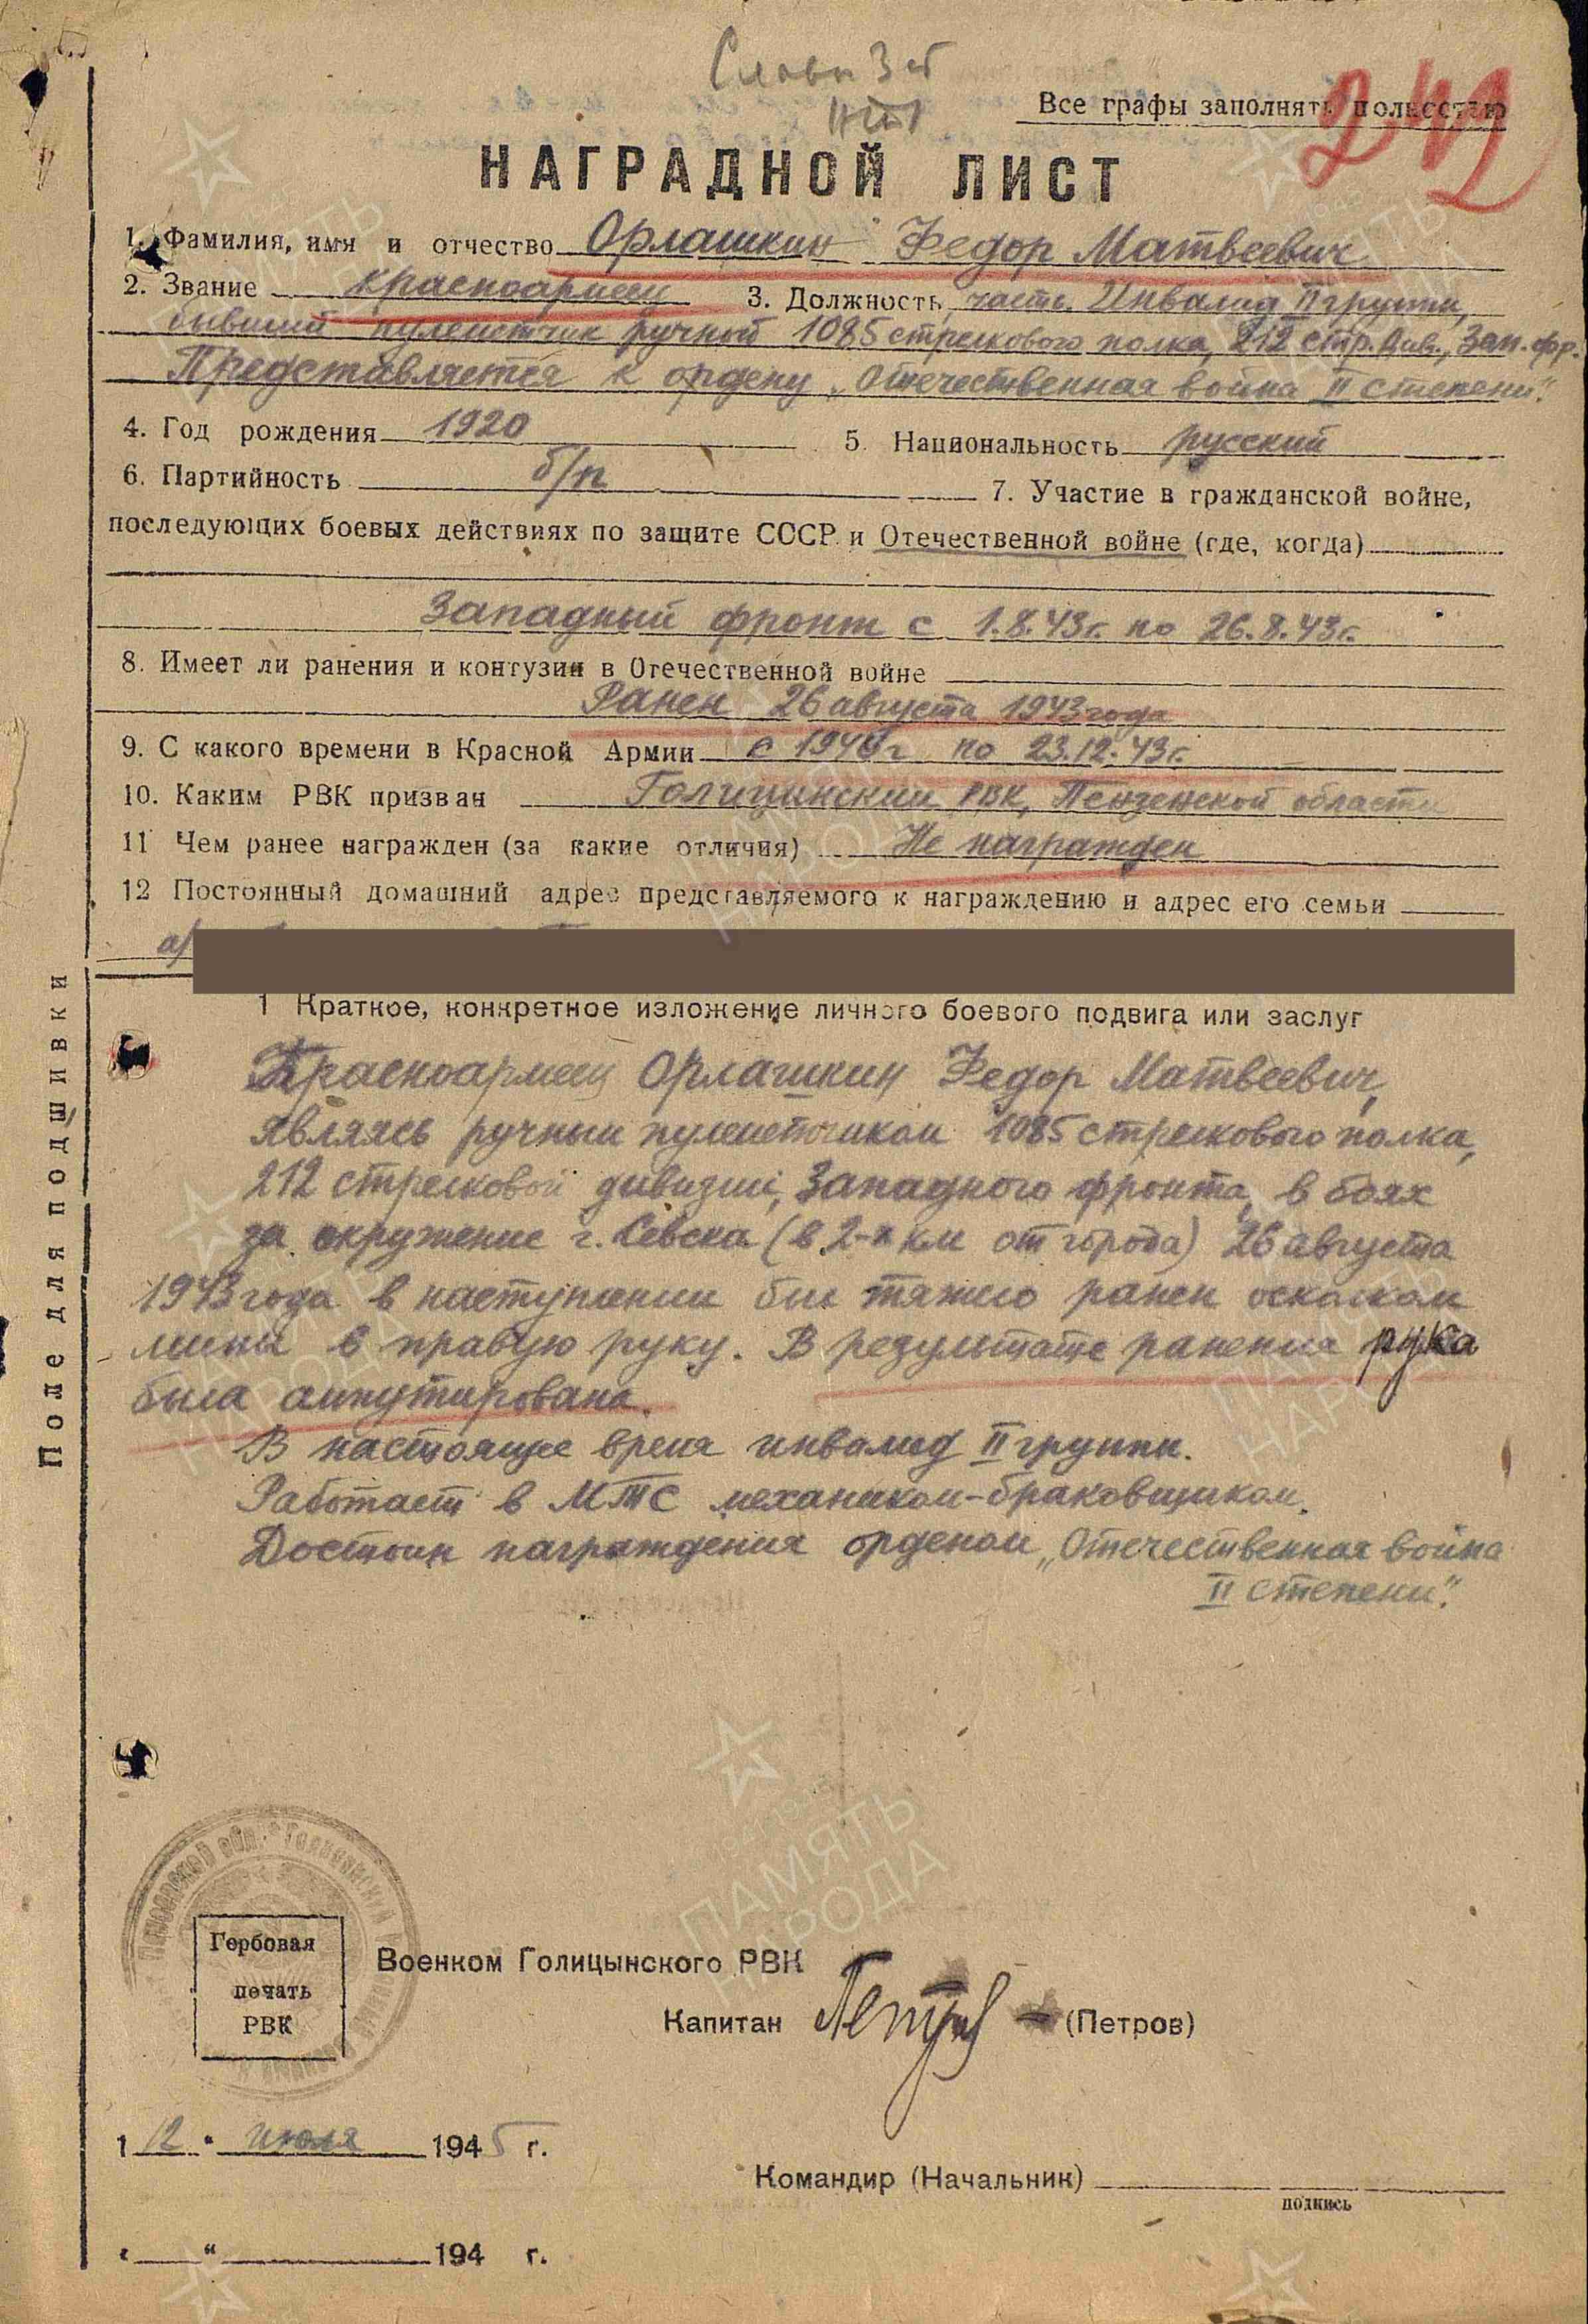 Славы 3 ст
Все графы заполнять полностью
242
НАГРАДНОЙ ЛИСТ
1. Фамилия, имя и отчество Орлашкин Федор Матвеевич
2. Звание красноармеец 3. Должность, часть. Инвалид II группы,
бывший пулеметчик ручной 1085 стрелкового полка, 212 стр. див., Зап. фр.
Представляется к ордену „Отечественная война II степени".
4. Год рождения 1920 5. Национальность русский
6. Партийность б/п 7. Участие в гражданской войне,
последующих боевых действиях по защите СССР и Отечественной войне (где, когда)
Западный фронт с 1.8.43г. по 26.8.43г.
8. Имеет ли ранения и контузии в Отечественной войне
Ранен 26 августа 1943 года
9. С какого времени в Красной Армии с 1940г по 23.12.43г.
10. Каким РВК призван Голицинский РВК, Пензенской области
11 Чем ранее награжден (за какие отличия) Не награжден
12 Постоянный домашний адрес представляемого к награждению и адрес его семьи
а)
1 Краткое, конкретное изложение личного боевого подвига или заслуг
Красноармеец Орлашкин Федор Матвеевич,
являясь ручным пулеметчиком 1085 стрелкового полка,
212 стрелковой дивизии, Западного фронта, в боях
за окружение г. Севска (в 2-х км от города) 26 августа
1943 года в наступлении был тяжело ранен осколком
мины в правую руку. В результате ранения рука
была ампутирована.
В настоящее время инвалид II группы.
Работает в МТС механиком-браковщиком.
Достоин награждения орденом „Отечественная война
II степени".
Поле для подшивки
Гербовая
печать
РВК
Военком Голицынского РВК
Капитан Петров (Петров)
1 12 " июля 1945 г.
Командир (Начальник)
подпись
" " 194 г.
ПАМЯТЬ
НАРОДА